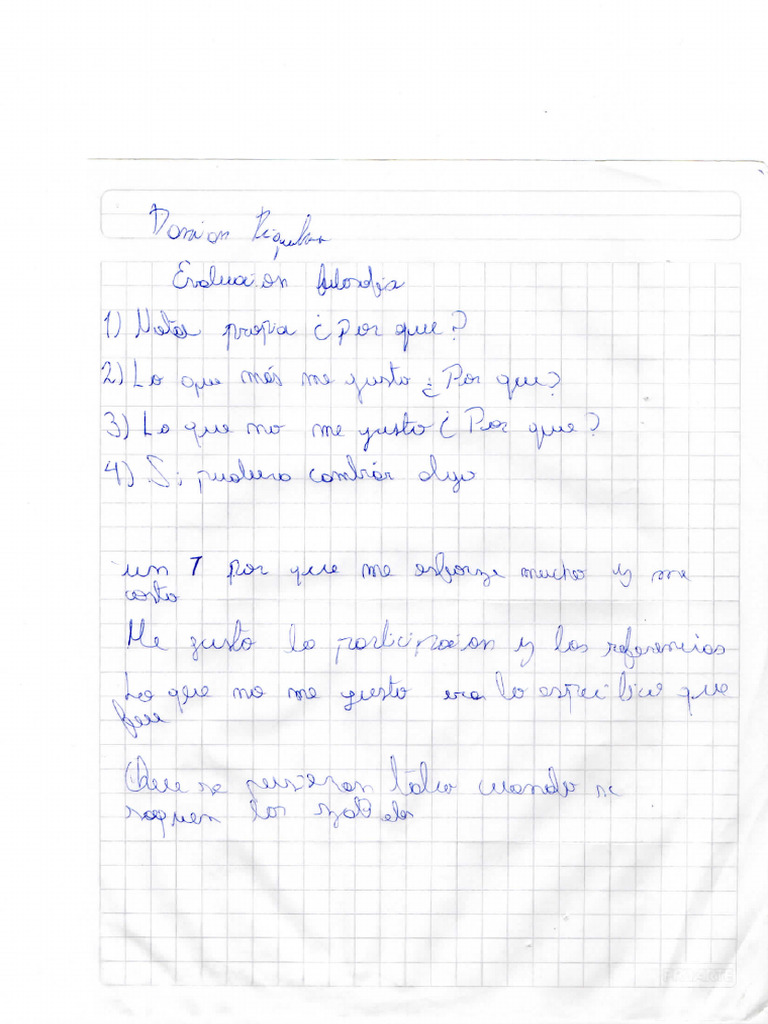 Damian
Evaluacion filosofia
1) Nota propia ¿Por que?
2) Lo que más me gusto ¿Por que?
3) Lo que no me gusto ¿Por que?
4) Si pudiera cambiar algo
un 7 por que me esforze mucho y me
costo
Me gusto la participacion y las referencias
Lo que no me gusto era lo especifico que
fue
Que se pusieran talco cuando se
saquen los